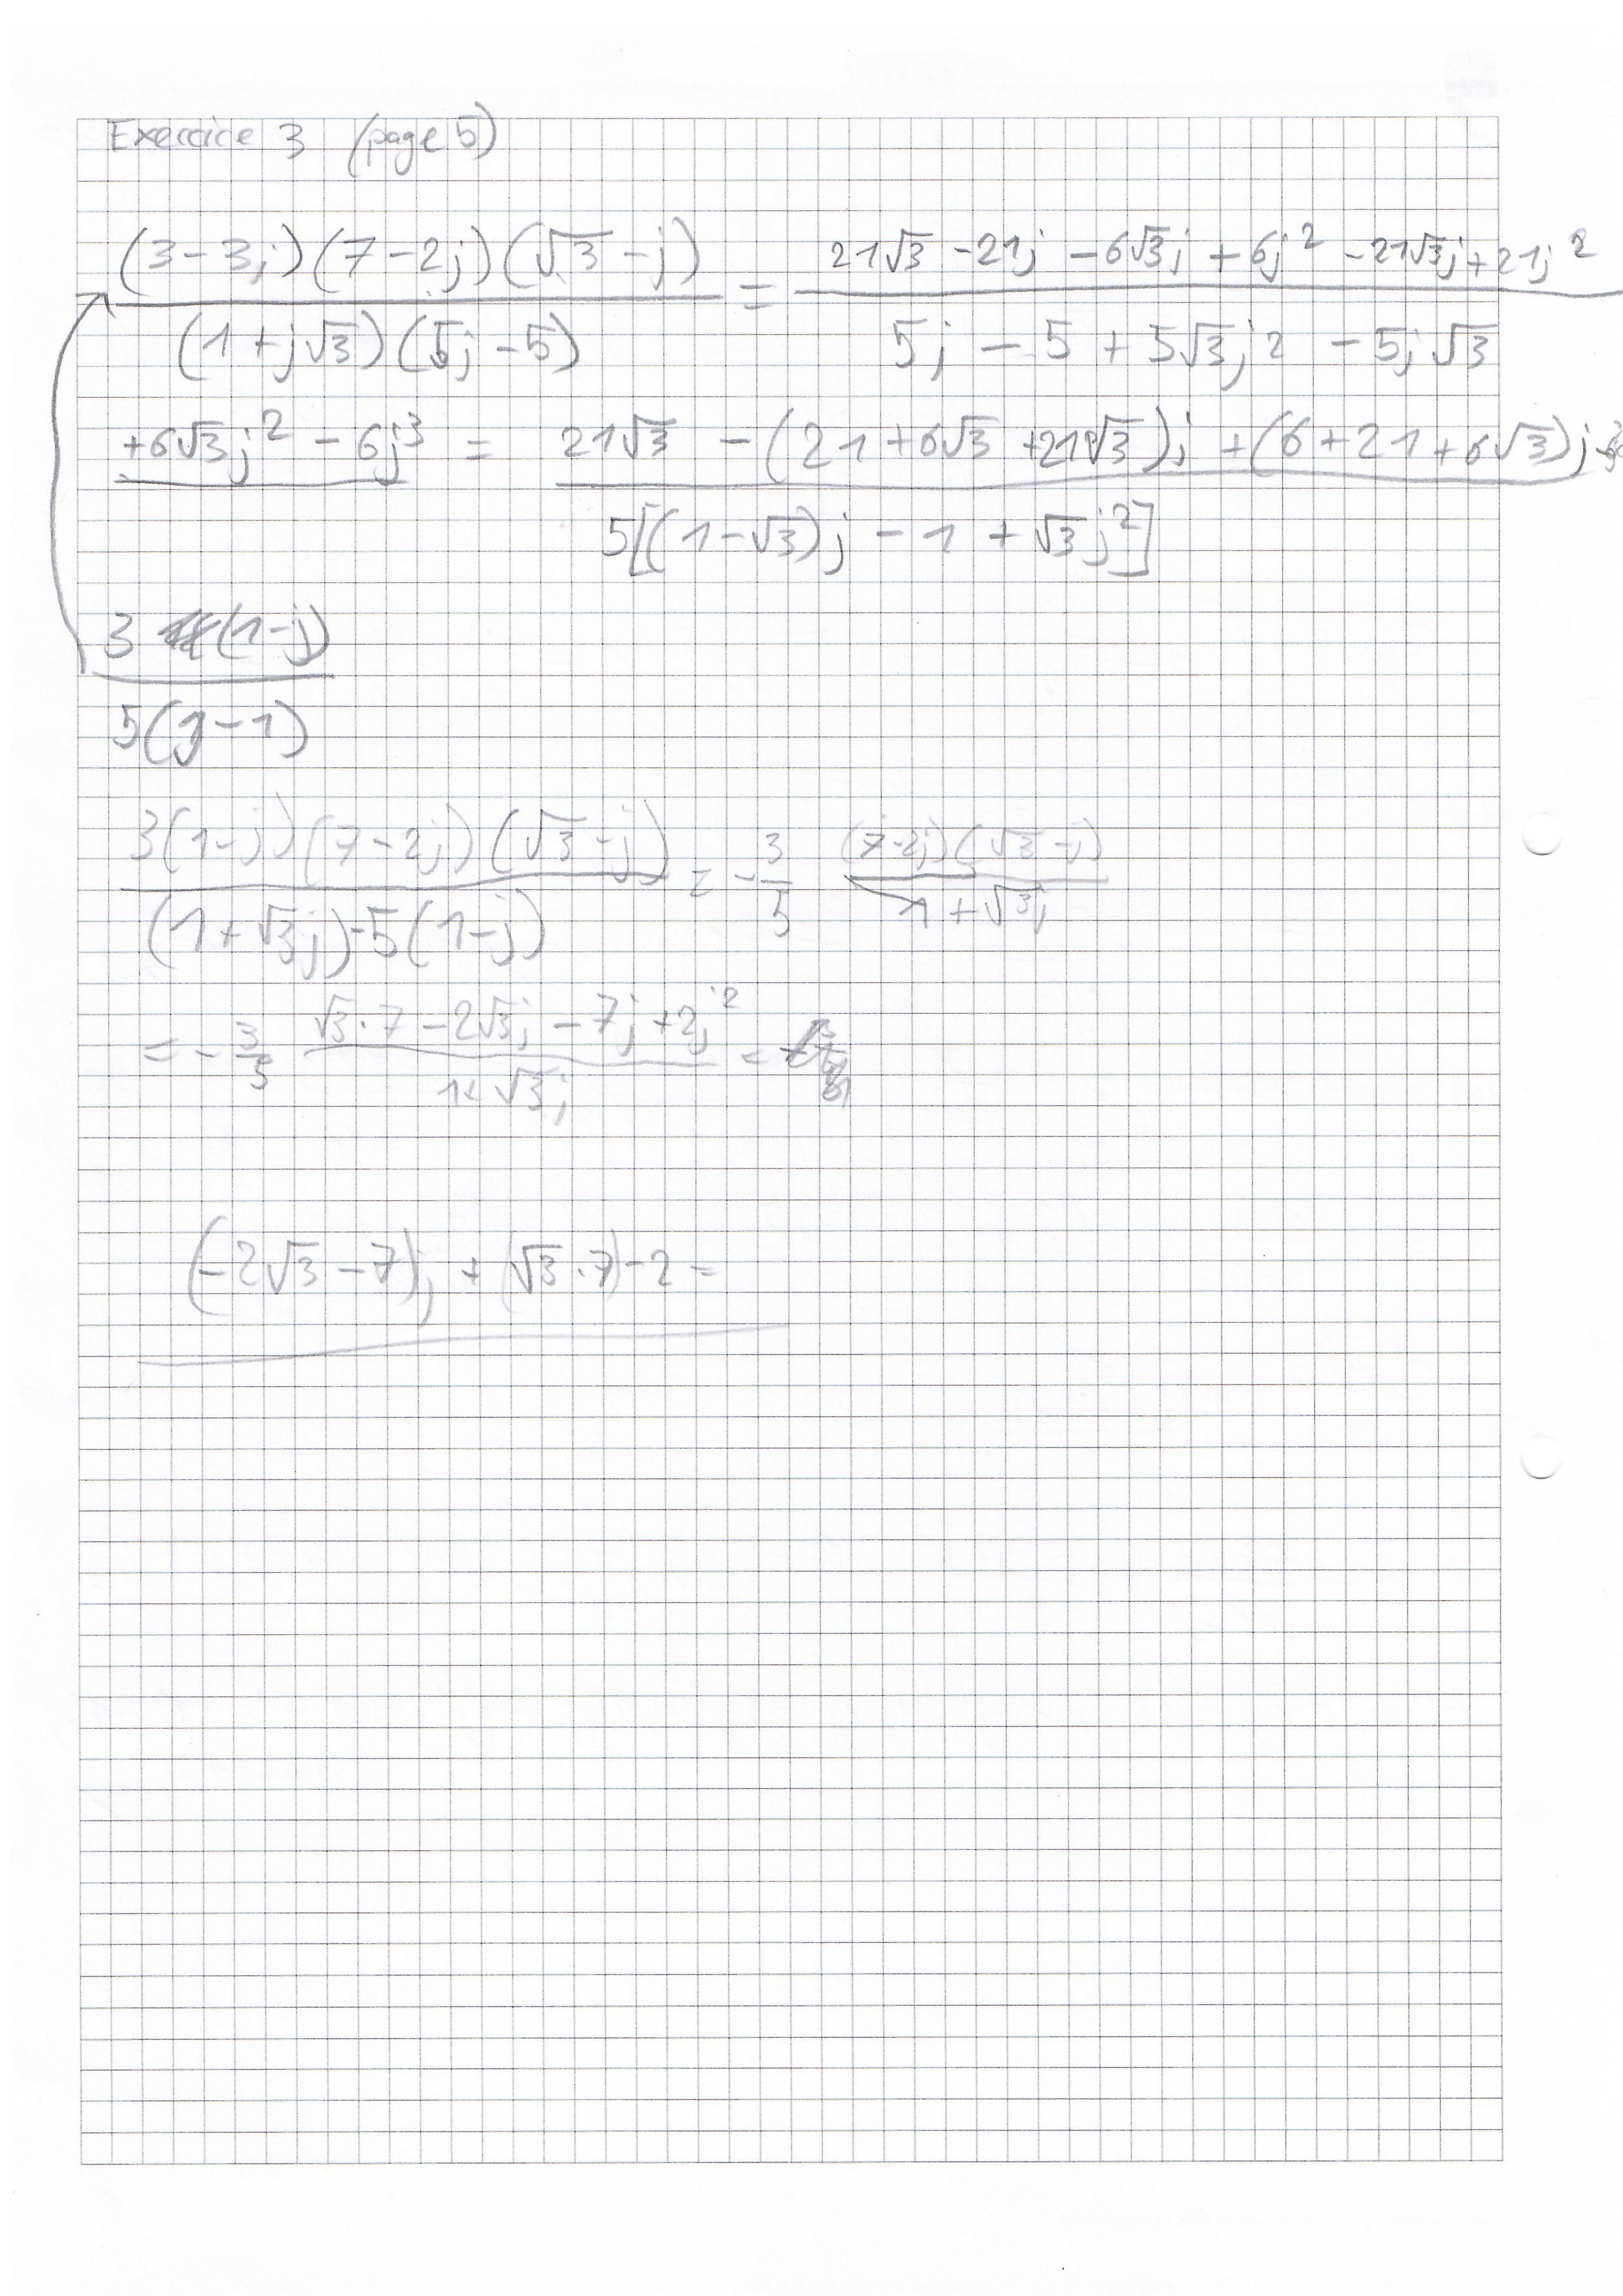 Exercice 3 (page 5)
(3-3j)(7-2j)(√3-j) / (1+j√3)(5j-5) = 21√3 -21j -6√3j +6j² -21√3j +21j² / 5j - 5 + 5√3j² - 5j√3
+6√3j² - 6j³ = 21√3 - (21+6√3+21√3)j + (6+21+6√3)j / 5[(1-√3)j - 1 + √3j²]
3 (1-j) / 5(j-1)
3(1-j)(7-2j)(√3-j) / (1+√3j)-5(1-j) = -3/5 (7-2j)(√3-j) / 1+√3j
= -3/5 √3·7 -2√3j -7j +2j² / 1+√3j =
(-2√3-7)j + (√3·7)-2 =